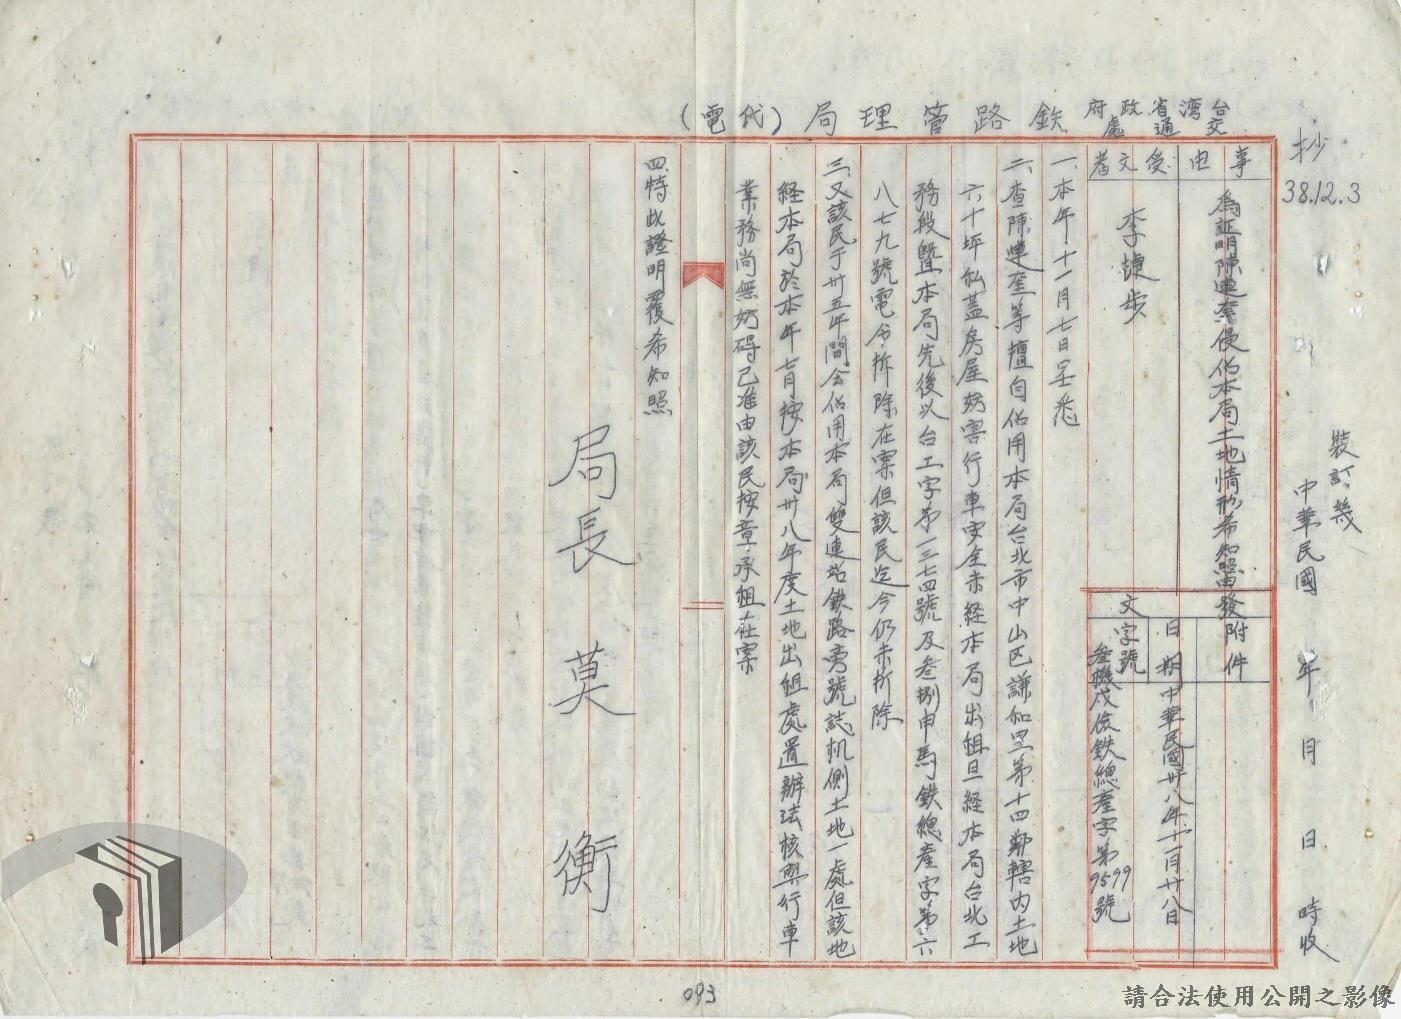 抄
38.12.3
裝訂幾
中華民國 年 月 日 時收
台灣省政府交通處鉄路管理局(代電)
事由
為証明陳連奎侵佔本局土地情形希知照由
受文者
李捷步
附件
發文
日期
中華民國卅八年十一月廿八日
字號
叁捌戌儉鉄總產字第9599號
一、本年十一月七日呈悉
二、查陳連奎等擅自佔用本局台北市中山区謙和里第十四鄰轄内土地
六十坪私蓋房屋妨害行車安全未経本局出租旦経本局台北工
務段暨本局先後以台工字第一三七四號及叁捌申馬鉄總產字第六
八七九號電令拆除在案但該民迄今仍未拆除
三、又該民于卅五年間佔用本局雙連站鉄路旁號誌机側土地一處但該地
経本局於本年七月按本局卅八年度土地出租處置辦法核與行車
業務尚無妨碍已准由該民按章承租在案
四、特此證明覆希知照
局長莫衡
093
請合法使用公開之影像